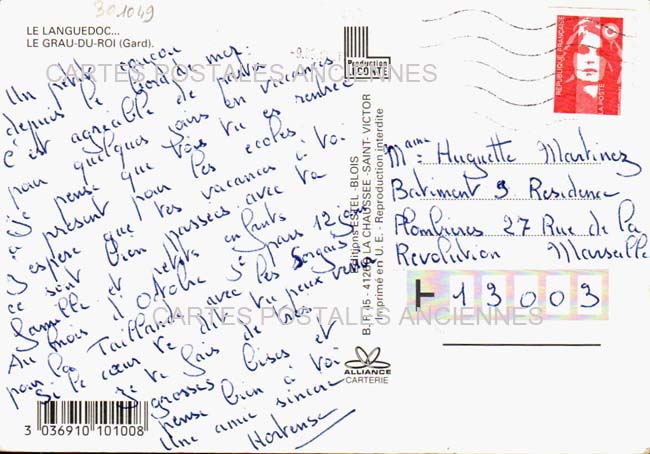 301049
LE LANGUEDOC...
LE GRAU-DU-ROI (Gard).
Un petit coucou
depuis le bord de mer.
C'est agréable de partir
pour quelques jours en vacances
Je pense que tu es rentrée
à présent pour les écoles
J'espère que tes vacances à toi
ce sont bien passées avec ta
famille et petits enfants
Au mois d'Octobre je pars 12 jours
pour la Taillande avec les
Si le cœur te dit tu peux venir
Je te fais de très
grosses bises et
pense bien à toi
Une amie sincère
Hortense
3 036910 101008
Production
LECONTE
Editions ESTEL - BLOIS
B.P. 45 - 41260 LA CHAUSSEE - SAINT-VICTOR
Imprimé en U.E. - Reproduction interdite
ALLIANCE
CARTERIE
REPUBLIQUE FRANÇAISE
LA POSTE
Mme Huguette Martinez
Batiment 9 Residence
Plombieres 27 Rue de la
Revolution Marseille
13003
CARTES POSTALES ANCIENNES
CARTES POSTALES ANCIENNES